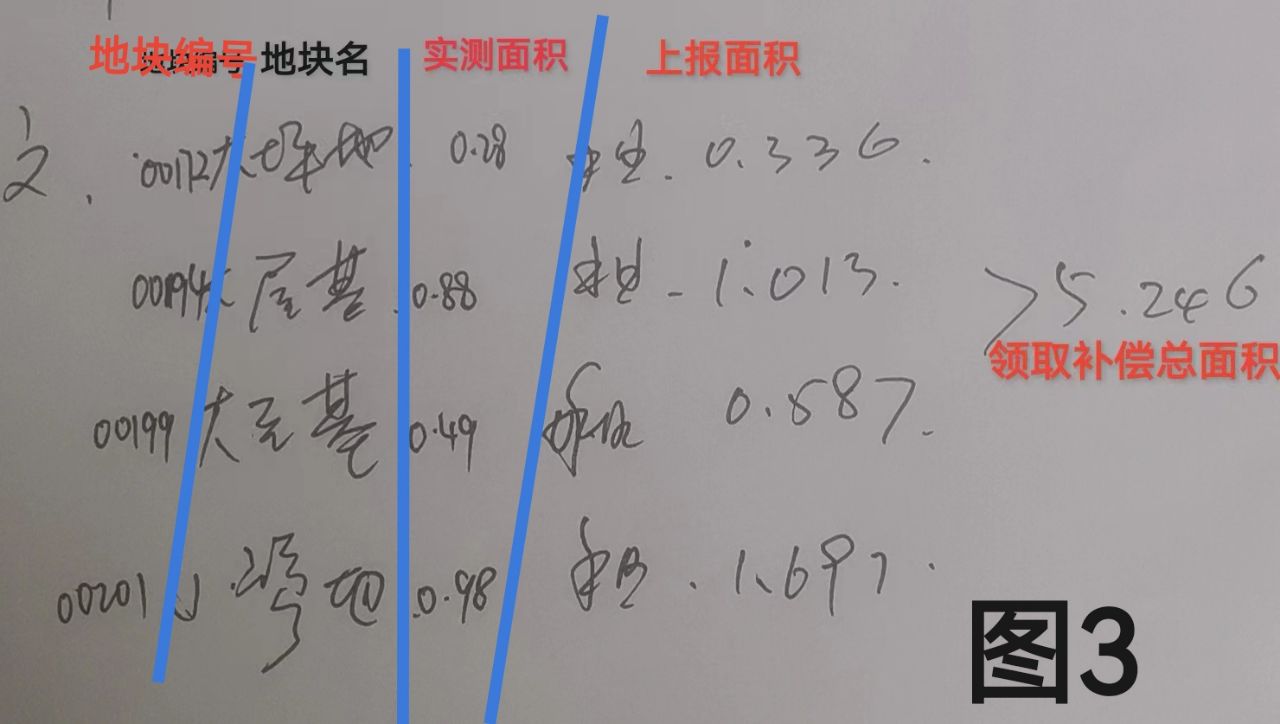 地块编号 地块名 实测面积 上报面积
2. 00172 大坪地. 0.28 0.336.
00194 大屋基. 0.88 1.013. >5.246
领取补偿总面积
00199 大屋基 0.49 0.587.
00201 小湾地 0.98 1.697.
图3